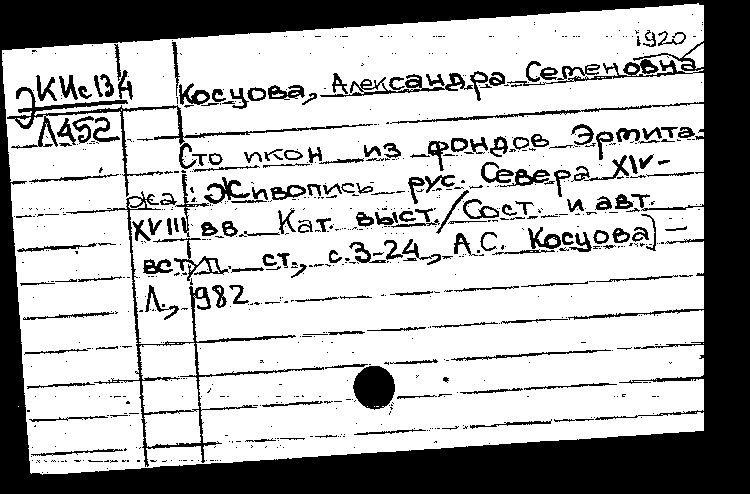 1920
ЭКИс134
Л452
Косцова, Александра Семеновна
Сто икон из фондов Эрмита-
жа: Живопись рус. Севера XIV-
XVIII вв. Кат. выст./Сост. и авт.
вступ. ст., с.3-24, А.С. Косцова) —
Л., 982